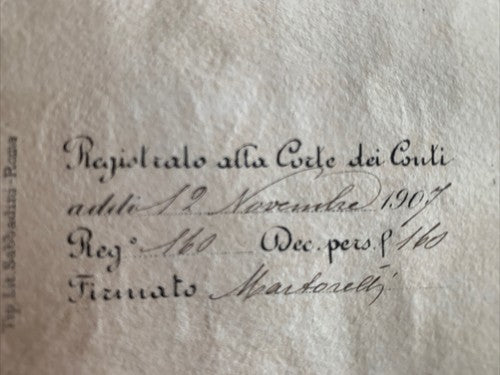 Registrato alla Corte dei Conti
addì 12 Novembre 1907
Reg.° 160 Dec. pers. f. 160
Firmato Martorelli
Tip. Lit. Sabbadini-Roma